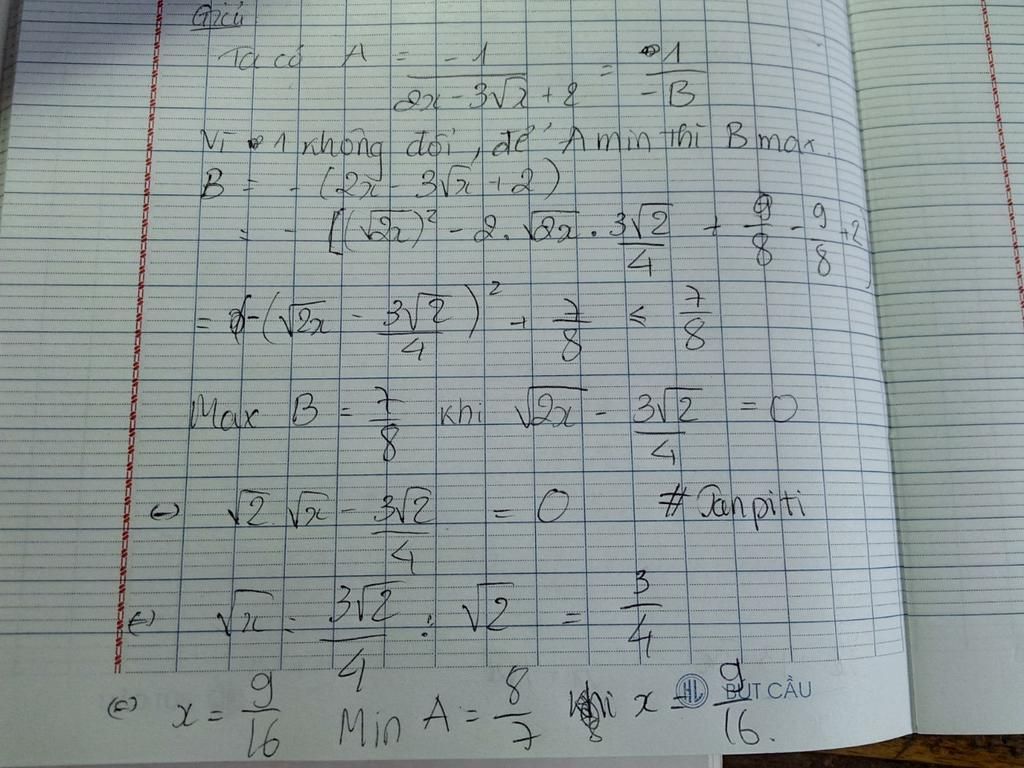 Giải
Ta có A = -1/(2x - 3√x + 2) = 1/-B
Vì 1 không đổi, để A min thì B max.
B = - (2x - 3√x + 2)
= - [(√2x)² - 2.√2x . 3√2/4 + 9/8 - 9/8 + 2)
= -(√2x - 3√2/4)² + 7/8 ≤ 7/8
Max B = 7/8 khi √2x - 3√2/4 = 0
(=) √2.√x - 3√2/4 = 0 # Tanpiti
(=) √x = 3√2/4 : √2 = 3/4
(=) x = 9/16 Min A = 8/7 khi x = 9/16.
HL BÚT CẦU